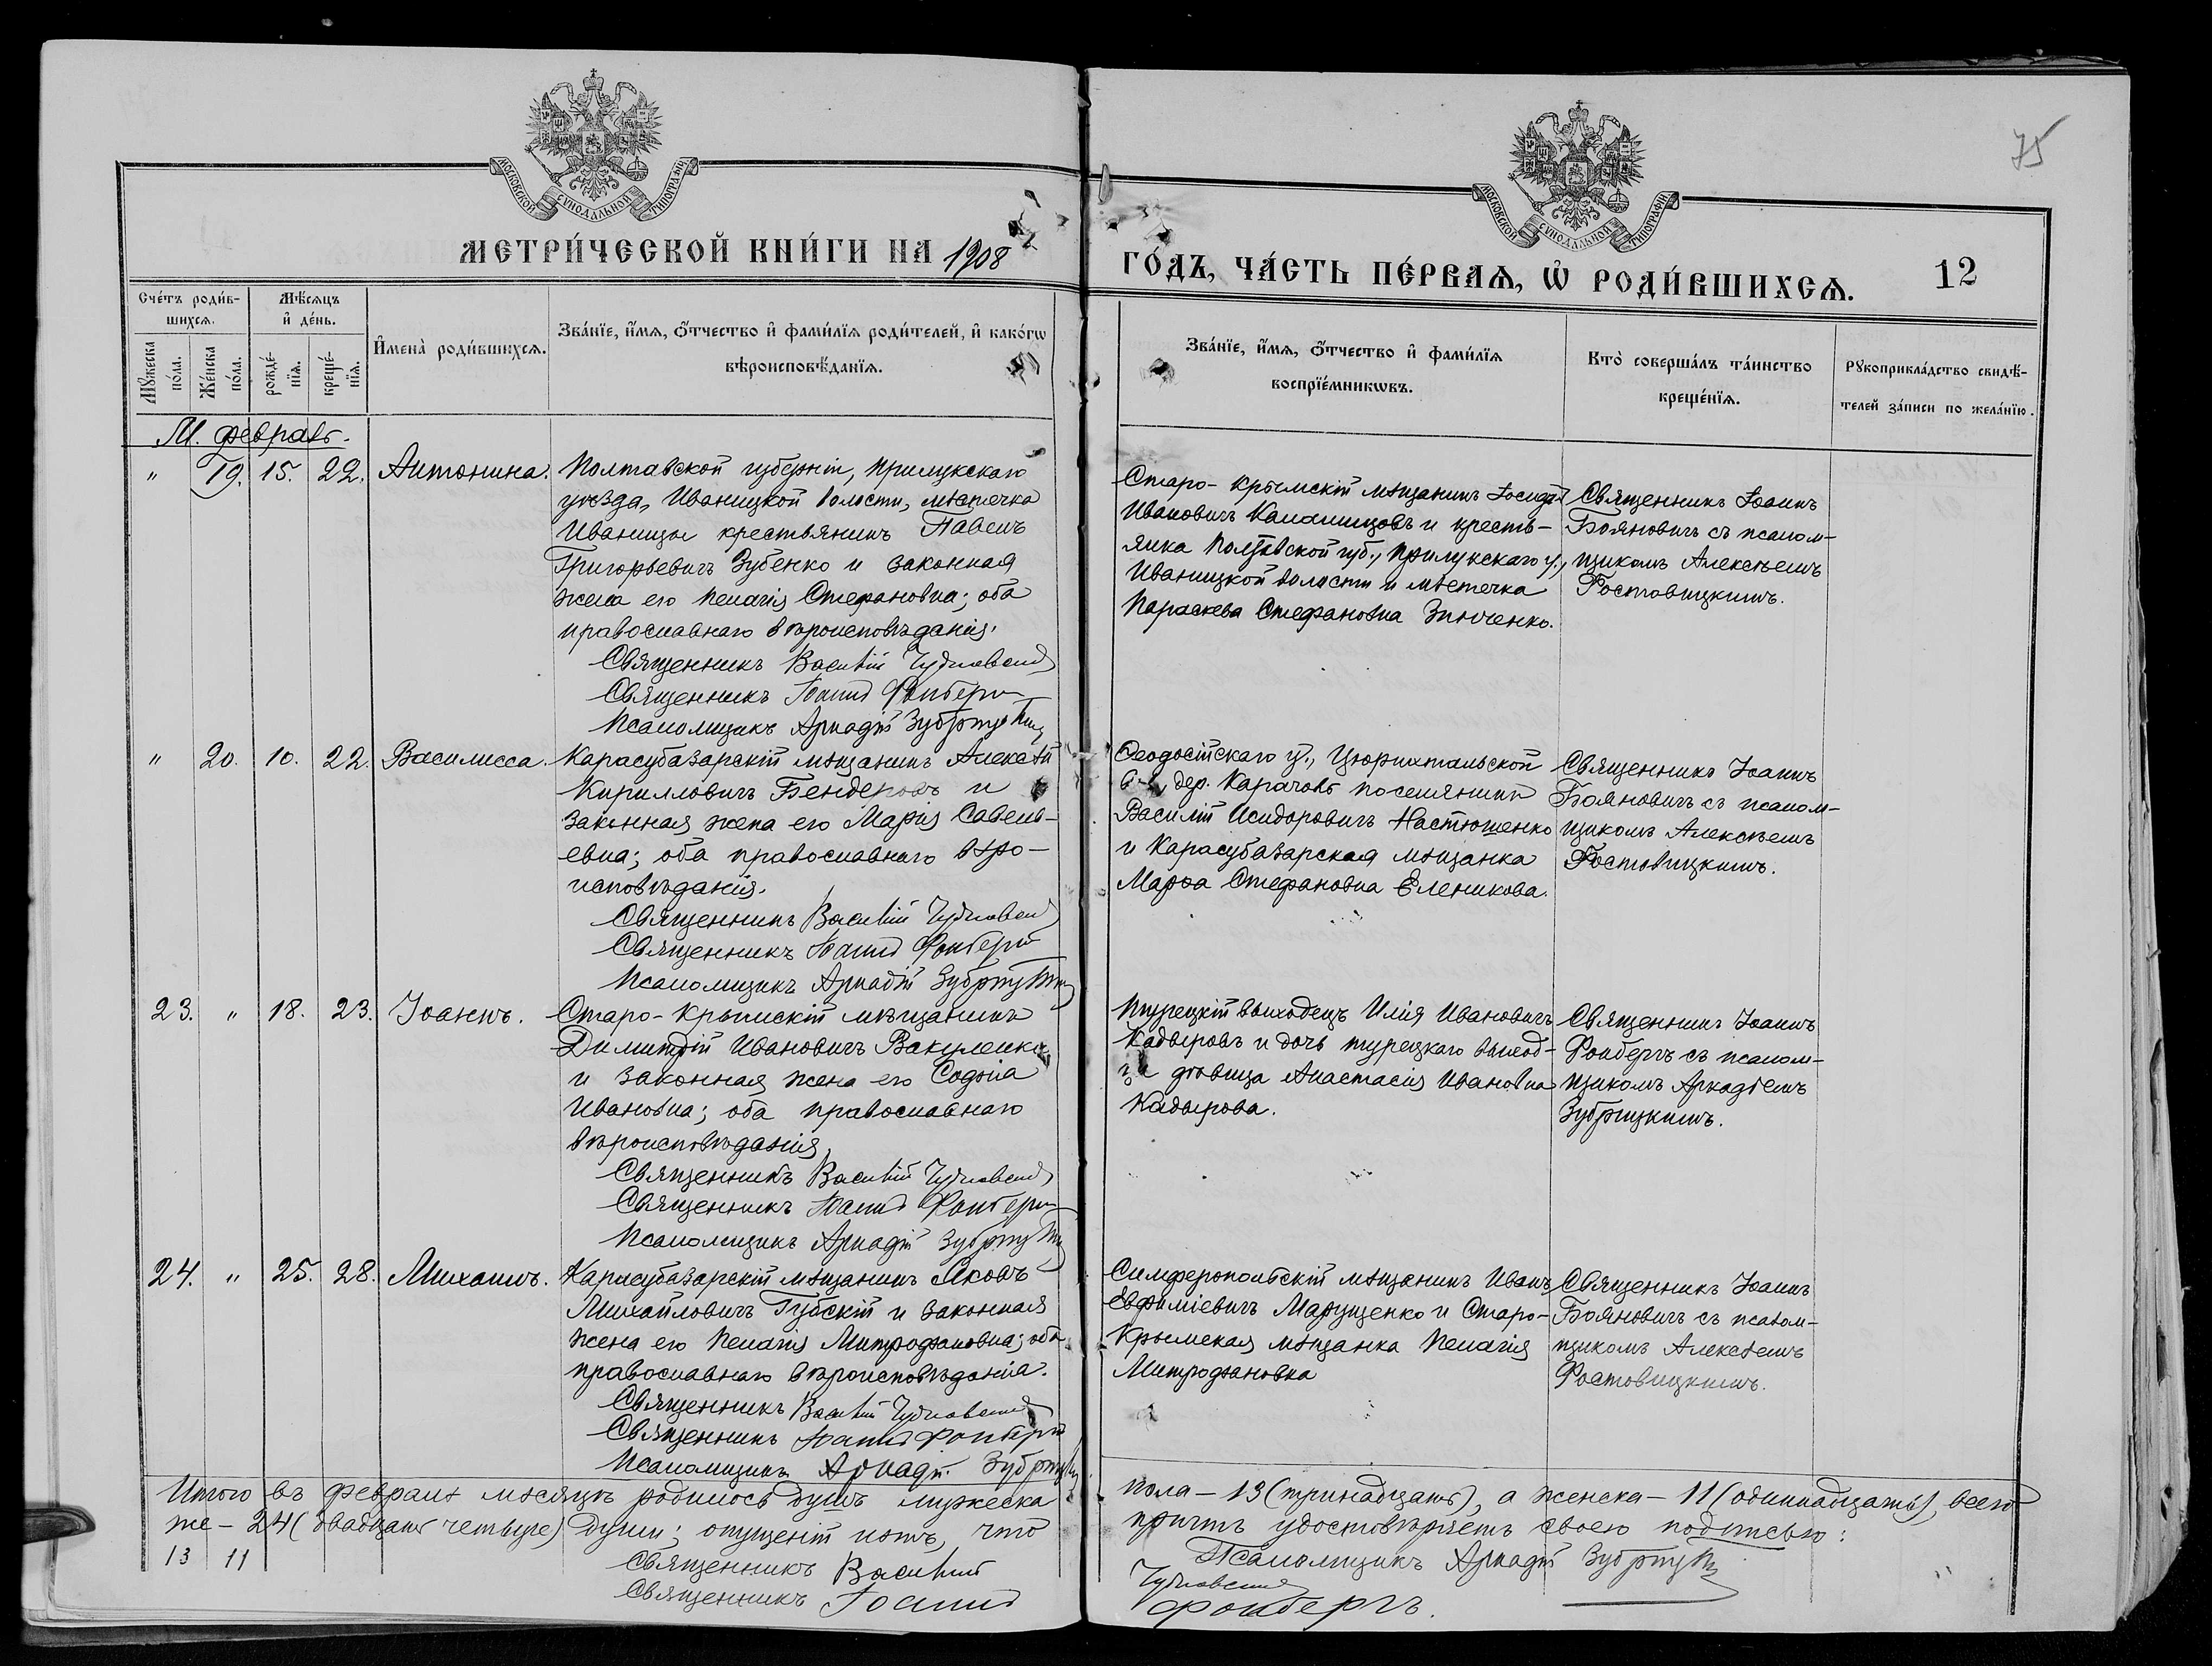 75
МОСКОВСКОЙ СѴНОДАЛЬНОЙ ТИПОГРАФІИ
МОСКОВСКОЙ СѴНОДАЛЬНОЙ ТИПОГРАФІИ
МЕТРИ́ЧЕСКОЙ КНИ́ГИ НА 1908
ГО́ДЪ, ЧА́СТЬ ПЕ́РВАѦ, Ѡ҆ РОДИ́ВШИХСѦ.
12
Сче́тъ роди́в-
шихсѧ.
Мѣ́сѧцъ
и҆ де́нь.
Мꙋ́жеска
по́ла.
Же́нска
по́ла.
рожде́-
нїѧ.
креще́-
нїѧ.
И҆мена̀ роди́вшихсѧ.
Зва́нїе, и҆́мѧ, ѻ҆́тчество и҆ фами́лїѧ роди́телей, и҆ како́гѡ
вѣроисповѣ́данїѧ.
Зва́нїе, и҆́мѧ, ѻ҆́тчество и҆ фами́лїѧ
воспрїе́мникѡвъ.
Кто̀ соверша́лъ та́инство
креще́нїѧ.
Рꙋкоприкла́дство свидѣ́-
телей за́писи по жела́нїю.
М. февраль.
" 19. 15. 22. Антонина.
Полтавской губерніи, Прилукскаго
уѣзда, Иваницкой волости, мѣстечка
Иваницы крестьянинъ Павелъ
Григорьевичъ Зубенко и законная
жена его Пелагія Стефановна; оба
православнаго вѣроисповѣданія.
Священникъ Василій Чудновскій
Священникъ Іоаннъ Фонбергъ
Псаломщикъ Аркадій Зубрицкій
Старо-Крымскій мѣщанинъ
Ивановичъ и кресть-
янка Полтавской губ., Прилукскаго у.,
Иваницкой волости и мѣстечка
Параскева Стефановна Зинченко.
Священникъ Іоаннъ
Бояновичъ съ псалом-
щикомъ Алексѣемъ
Ростовицкимъ.
" 20. 10. 22. Василисса.
Карасубазарскій мѣщанинъ Алексѣй
Кирилловичъ Бендеровъ и
законная жена его Марія Савель-
евна; оба православнаго вѣро-
исповѣданія.
Священникъ Василій Чудновскій
Священникъ Іоаннъ Фонбергъ
Псаломщикъ Аркадій Зубрицкій
Ѳеодосійскаго у., Цюрихтальской
в-и, дер. Карачоль поселянинъ
Василій Исидоровичъ Настюшенко
и Карасубазарская мѣщанка
Марѳа Стефановна Еленикова.
Священникъ Іоаннъ
Бояновичъ съ псалом-
щикомъ Алексѣемъ
Ростовицкимъ.
23. " 18. 23. Іоаннъ.
Старо-Крымскій мѣщанинъ
Димитрій Ивановичъ Вакуленко
и законная жена его Софія
Ивановна; оба православнаго
вѣроисповѣданія,
Священникъ Василій Чудновскій
Священникъ Іоаннъ Фонбергъ
Псаломщикъ Аркадій Зубрицкій
Турецкій выходецъ Илія Ивановичъ
Кадыровъ и дочь турецкаго выход-
ца дѣвица Анастасія Ивановна
Кадырова.
Священникъ Іоаннъ
Фонбергъ съ псалом-
щикомъ Аркадіемъ
Зубрицкимъ.
24. " 25. 28. Михаилъ.
Карасубазарскій мѣщанинъ Яковъ
Михайловичъ Губскій и законная
жена его Пелагія Митрофановна; оба
православнаго вѣроисповѣданія.
Священникъ Василій Чудновскій
Священникъ Іоаннъ Фонбергъ
Псаломщикъ Аркадій Зубрицкій
Симферопольскій мѣщанинъ Иванъ
Евфиміевичъ Марущенко и Старо-
Крымская мѣщанка Пелагія
Митрофановна
Священникъ Іоаннъ
Бояновичъ съ псалом-
щикомъ Алексѣемъ
Ростовицкимъ.
Итого въ февралѣ мѣсяцѣ родилось душъ мужеска
пола – 13 (тринадцать), а женска – 11 (одиннадцать), всего
же – 24 (двадцать четыре) души; опущеній нѣтъ, что
причтъ удостовѣряетъ своею подписью:
13 11
Священникъ Василій Чудновскій
Священникъ Іоаннъ Фонбергъ.
Псаломщикъ Аркадій Зубрицкій